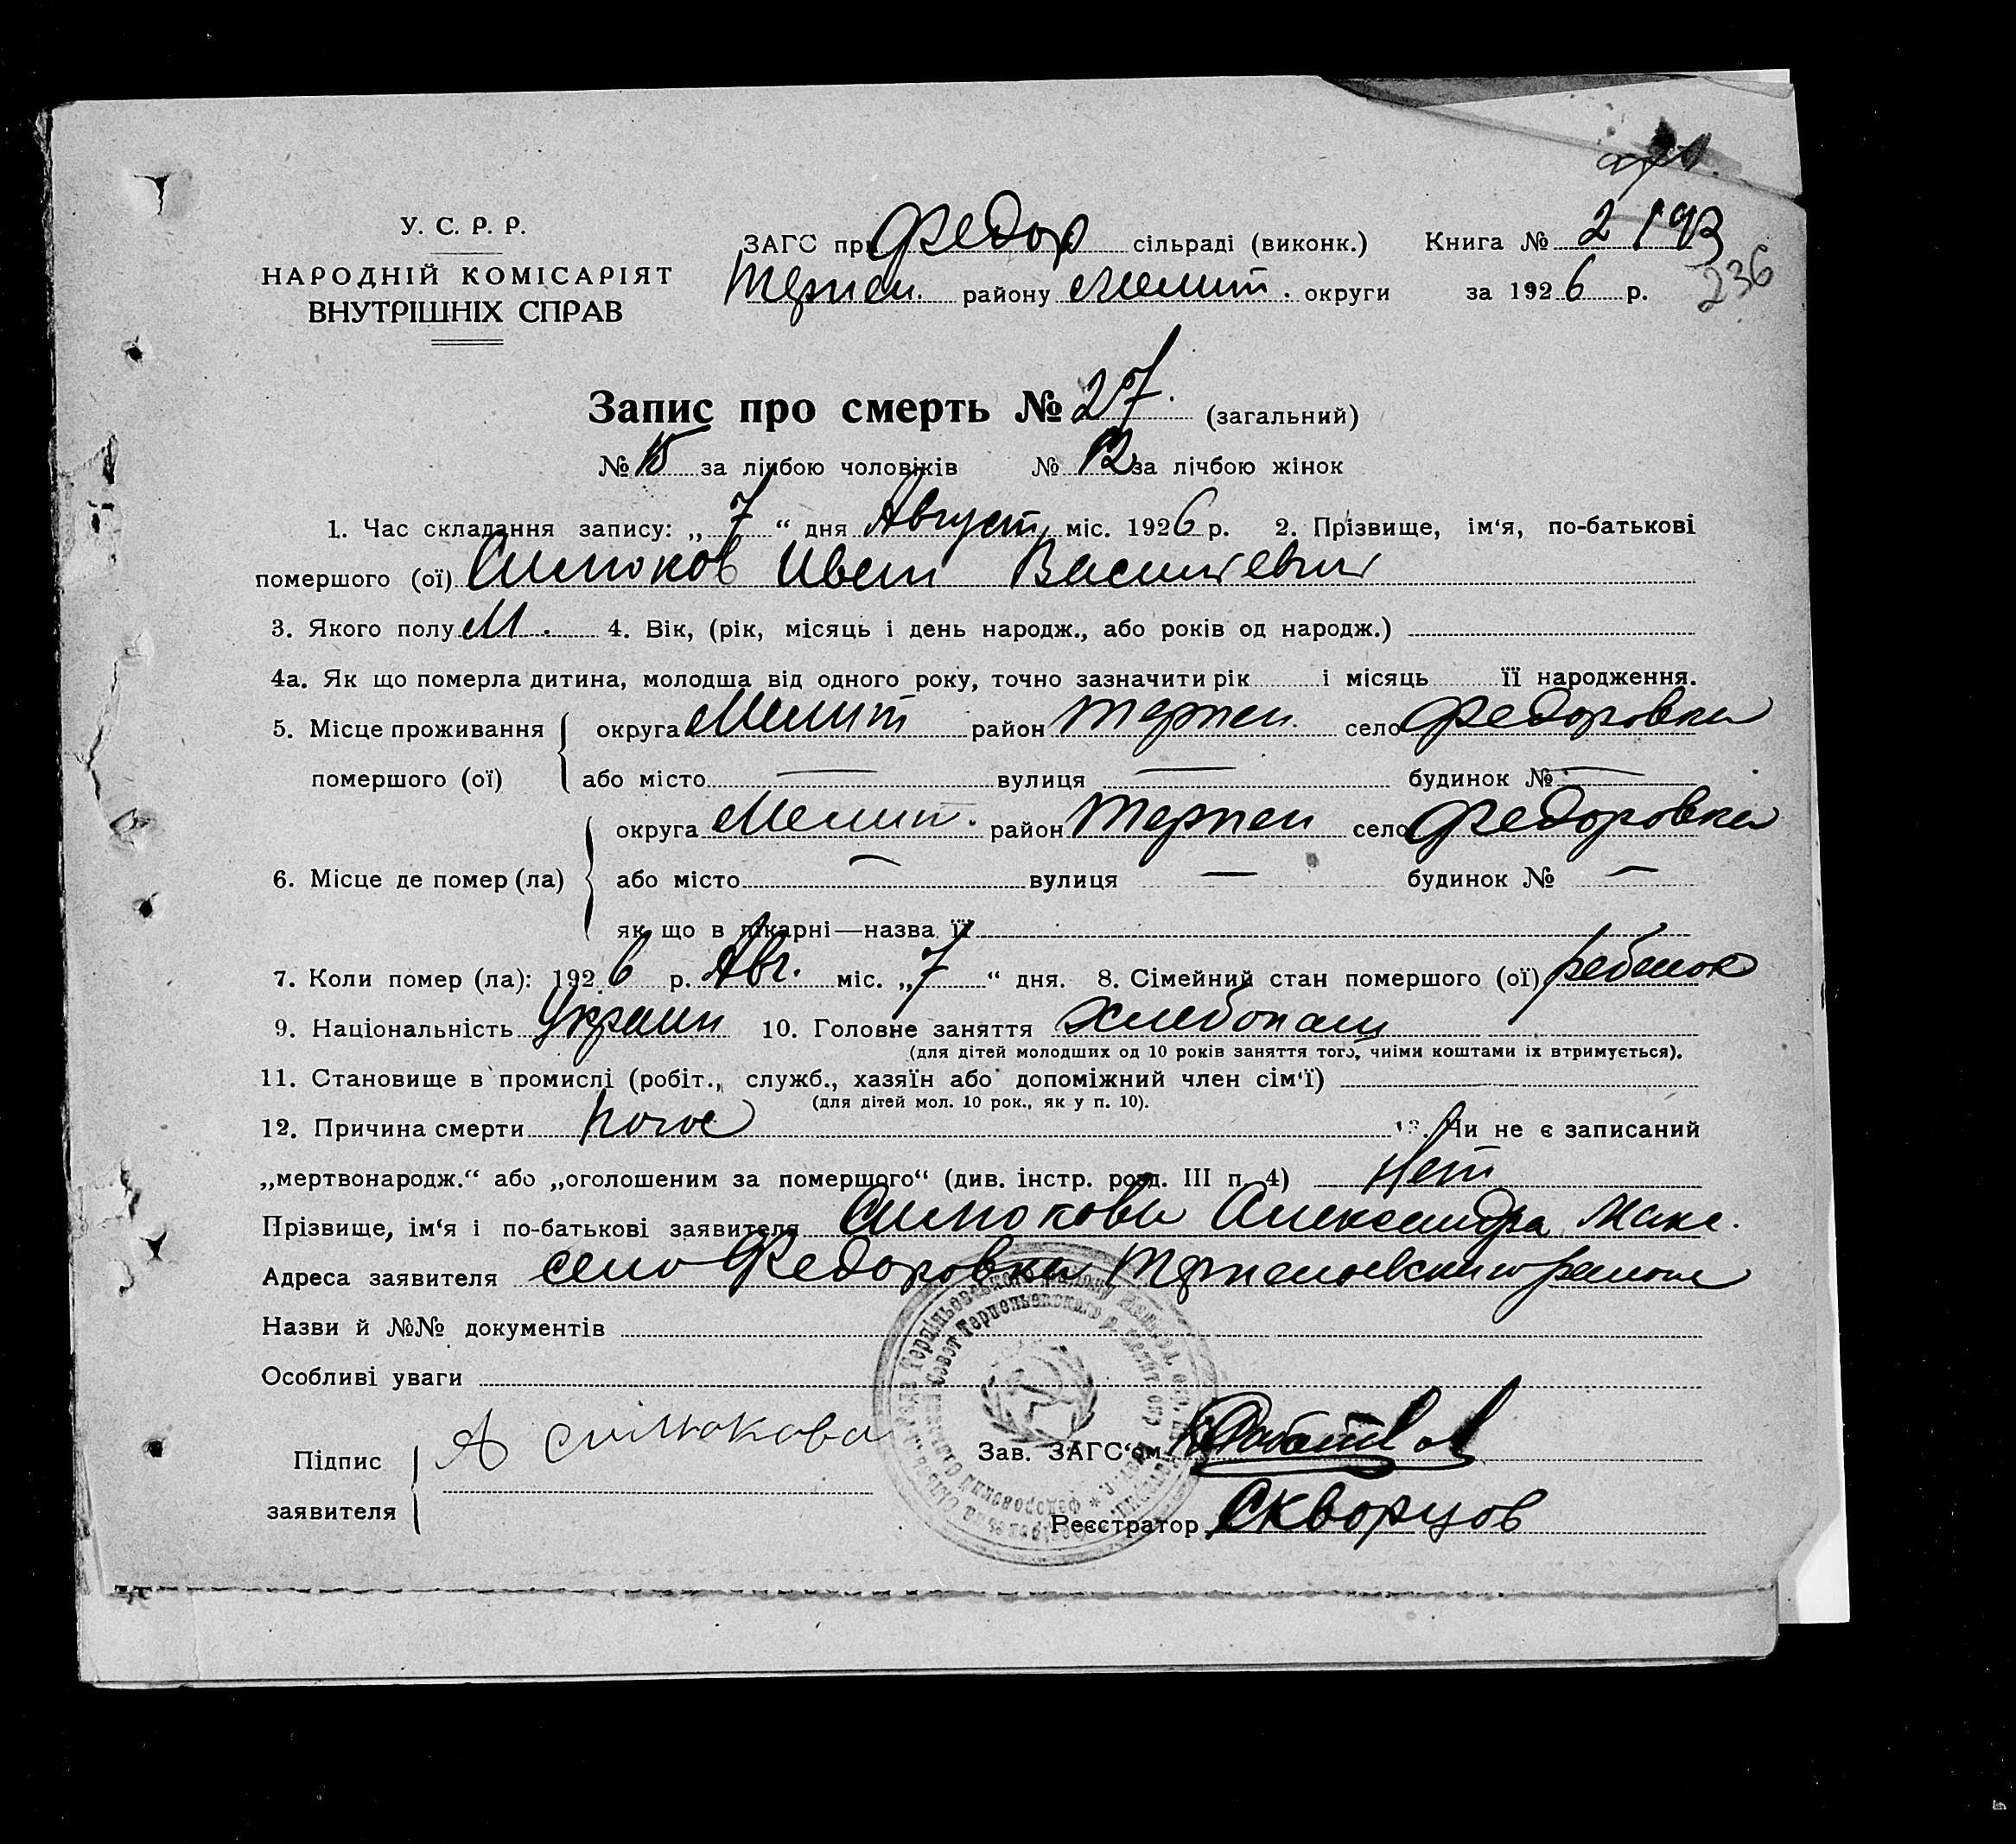 У. С. Р. Р.
НАРОДНІЙ КОМІСАРІЯТ
ВНУТРІШНІХ СПРАВ
ЗАГС при Федор сільраді (виконк.) Книга № 2 193
Терпен. району Мелит. округи за 1926 р. 236
Запис про смерть № 27. (загальний)
№ 15 за лічбою чоловіків № 12 за лічбою жінок
1. Час складання запису: „7“ дня Август міс. 1926 р. 2. Прізвище, ім‘я, по-батькові
помершого (ої) Силюков Иван Васильевич
3. Якого полу М. 4. Вік, (рік, місяць і день народж., або років од народж.)
4а. Як що померла дитина, молодша від одного року, точно зазначити рік і місяць її народження.
5. Місце проживання округа Мелит район Терпен. село Федоровка
помершого (ої) або місто — вулиця — будинок № —
округа Мелит. район Терпен село Федоровка
6. Місце де помер (ла) або місто — вулиця — будинок № —
як що в лікарні—назва її
7. Коли помер (ла): 1926 р. Авг. міс. „7“ дня. 8. Сімейний стан помершого (ої) ребенок
9. Національність Украин 10. Головне заняття Хлебопаш
(для дітей молодших од 10 років заняття того, чиїми коштами їх втримується).
11. Становище в промислі (робіт., служб., хазяїн або допоміжний член сім‘ї)
(для дітей мол. 10 рок., як у п. 10).
12. Причина смерти 13. Чи не є записаний
„мертвонародж.“ або „оголошеним за померщого“ (див. інстр. розд. III п. 4) Нет
Прізвище, ім‘я і по-батькові заявителя Силюкова Александра Макс.
Адреса заявителя село Федоровка Терпеньевского района
Назви й №№ документів
Особливі уваги
Підпис заявителя А Силюкова
Зав. ЗАГС‘ом
Реєстратор Скворцов